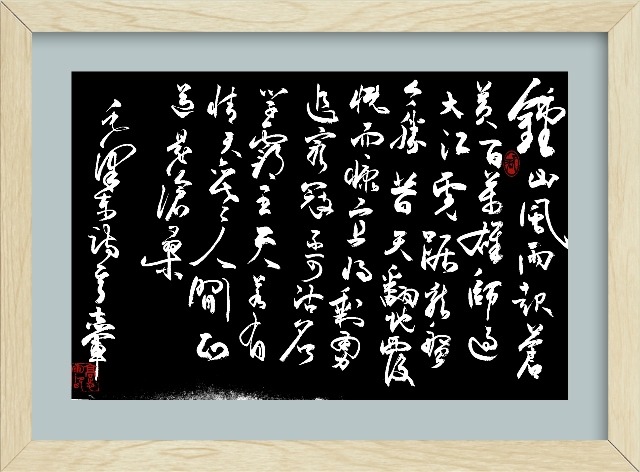 鍾山風雨起蒼
黄百萬雄師過
大江虎踞龍盤
今勝昔天翻地覆
慨而慷宜将剩勇
追窮寇不可沽名
学霸王天若有
情天亦老人間正
道是滄桑
毛澤東詩